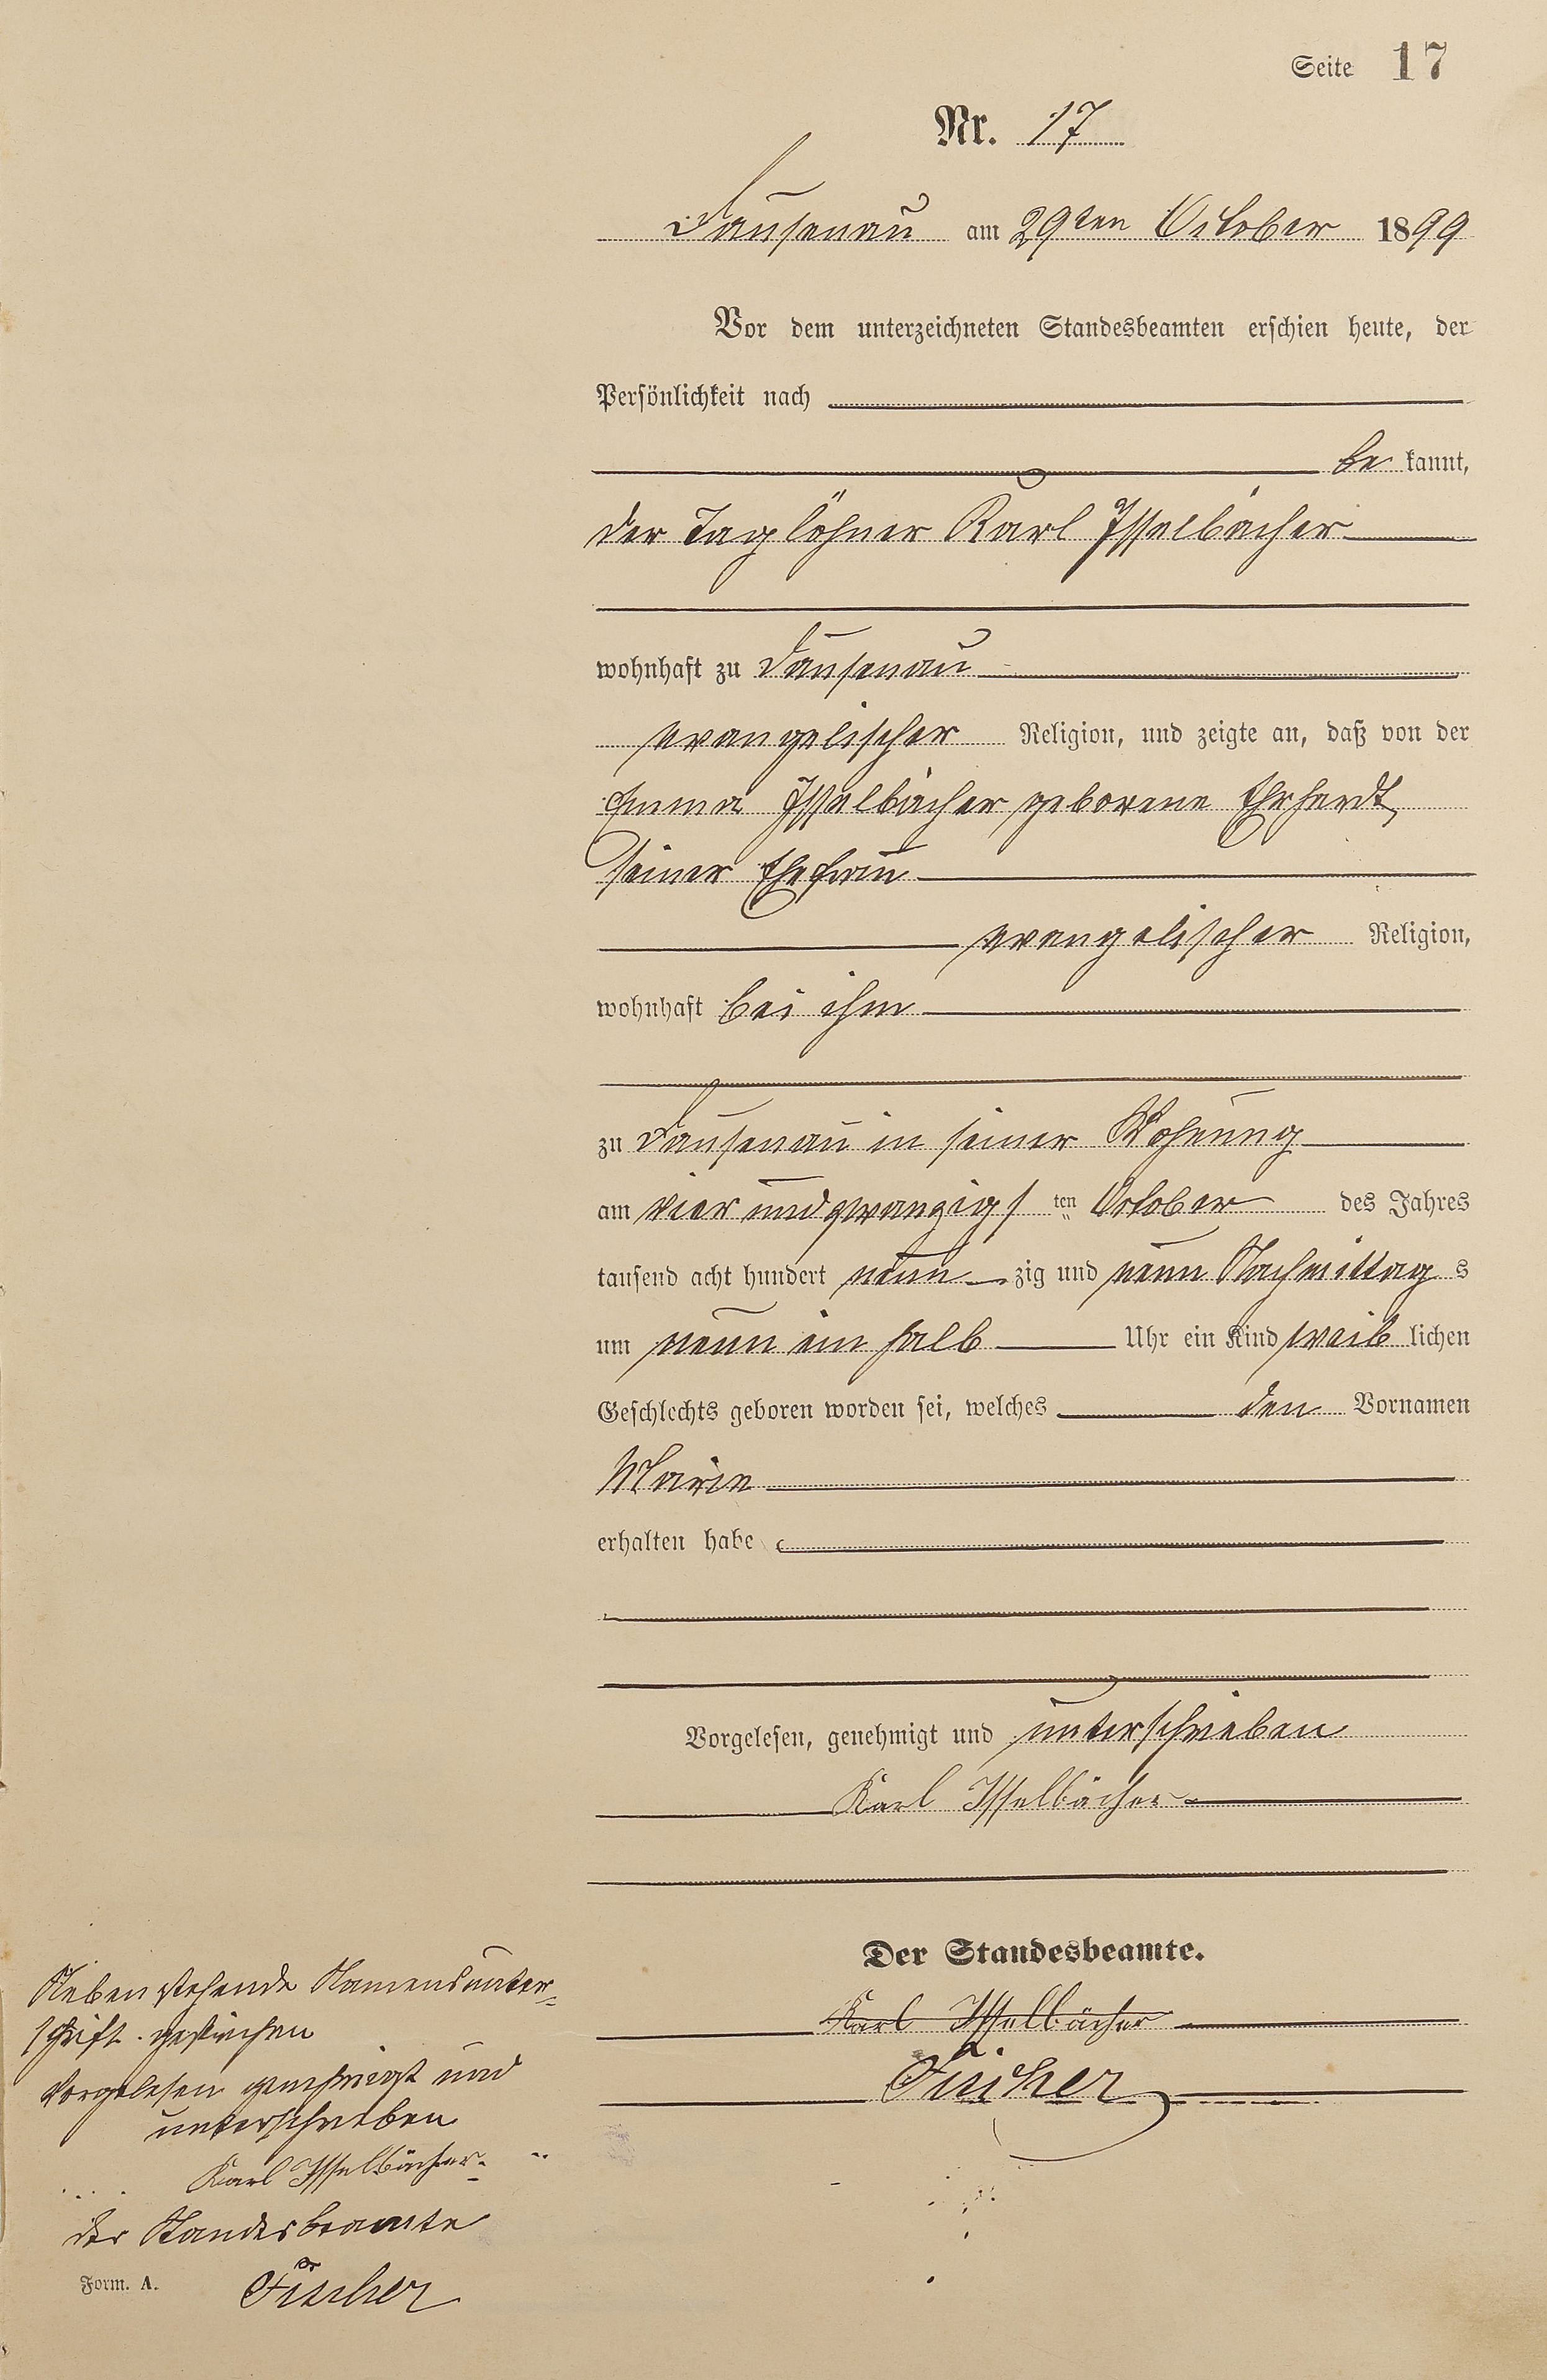 Seite 17
Nr. 17
Dausenau am 29ten October 1899
Vor dem unterzeichneten Standesbeamten erschien heute, der
Persönlichkeit nach
be kannt,
der Taglöhner Karl Isselbächer
wohnhaft zu Dausenau
evangelischer Religion, und zeigte an, daß von der
Emma Isselbächer geborene Ehrhardt,
seiner Ehefrau
evangelischer Religion,
wohnhaft bei ihm
zu Dausenau in seiner Wohnung
am vier und zwanzigsten October des Jahres
tausend acht hundert neun zig und neun Nachmittag s
um neun ein halb Uhr ein Kind weib lichen
Geschlechts geboren worden sei, welches den Vornamen
Marie
erhalten habe
Vorgelesen, genehmigt und unterschrieben
Karl Isselbächer
Der Standesbeamte.
Karl Isselbächer
Fischer
Nebenstehende Namensunter=
schrift gestrichen
Vorgelesen genehmigt und
unterschrieben
Karl Isselbächer
Der Standesbeamte
Fischer
Form. A.